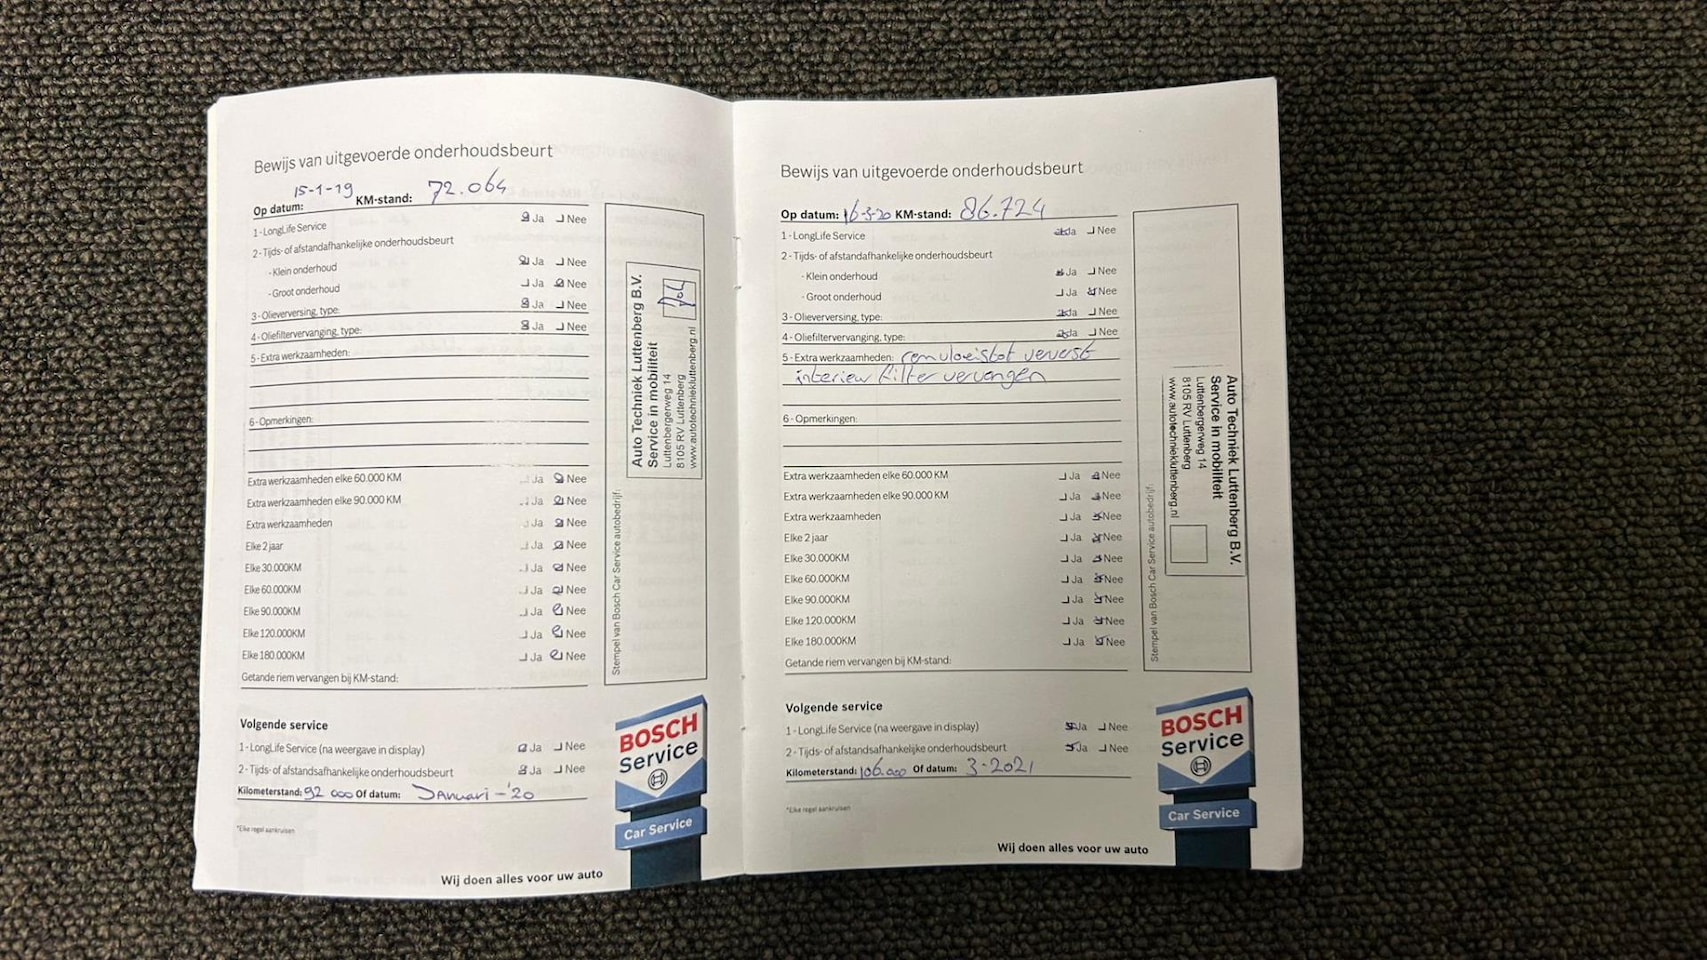 Bewijs van uitgevoerde onderhoudsbeurt
Op datum: 15-1-19 KM-stand: 72.064
1 - LongLife Service Ja Nee
2 - Tijds- of afstandafhankelijke onderhoudsbeurt
- Klein onderhoud Ja Nee
- Groot onderhoud Ja Nee
3 - Olieverversing, type: Ja Nee
4 - Oliefiltervervanging, type: Ja Nee
5 - Extra werkzaamheden:
6 - Opmerkingen:
Extra werkzaamheden elke 60.000 KM Ja Nee
Extra werkzaamheden elke 90.000 KM Ja Nee
Extra werkzaamheden Ja Nee
Elke 2 jaar Ja Nee
Elke 30.000KM Ja Nee
Elke 60.000KM Ja Nee
Elke 90.000KM Ja Nee
Elke 120.000KM Ja Nee
Elke 180.000KM Ja Nee
Getande riem vervangen bij KM-stand:
Volgende service
1 - LongLife Service (na weergave in display) Ja Nee
2 - Tijds- of afstandsafhankelijke onderhoudsbeurt Ja Nee
Kilometerstand: 92 000 Of datum: Januari - '20
*Elke regel aankruisen
Wij doen alles voor uw auto
Stempel van Bosch Car Service autobedrijf:
Auto Techniek Luttenberg B.V.
Service in mobiliteit
Luttenbergerweg 14
8105 RV Luttenberg
www.autotechniekluttenberg.nl
BOSCH
Service
Car Service
Bewijs van uitgevoerde onderhoudsbeurt
Op datum: 16-3-20 KM-stand: 86.724
1 - LongLife Service Ja Nee
2 - Tijds- of afstandafhankelijke onderhoudsbeurt
- Klein onderhoud Ja Nee
- Groot onderhoud Ja Nee
3 - Olieverversing, type: Ja Nee
4 - Oliefiltervervanging, type: Ja Nee
5 - Extra werkzaamheden: remvloeistof ververst
interieur filter vervangen
6 - Opmerkingen:
Extra werkzaamheden elke 60.000 KM Ja Nee
Extra werkzaamheden elke 90.000 KM Ja Nee
Extra werkzaamheden Ja Nee
Elke 2 jaar Ja Nee
Elke 30.000KM Ja Nee
Elke 60.000KM Ja Nee
Elke 90.000KM Ja Nee
Elke 120.000KM Ja Nee
Elke 180.000KM Ja Nee
Getande riem vervangen bij KM-stand:
Volgende service
1 - LongLife Service (na weergave in display) Ja Nee
2 - Tijds- of afstandsafhankelijke onderhoudsbeurt Ja Nee
Kilometerstand: 106.000 Of datum: 3-2021
*Elke regel aankruisen
Wij doen alles voor uw auto
Stempel van Bosch Car Service autobedrijf:
Auto Techniek Luttenberg B.V.
Service in mobiliteit
Luttenbergerweg 14
8105 RV Luttenberg
www.autotechniekluttenberg.nl
BOSCH
Service
Car Service